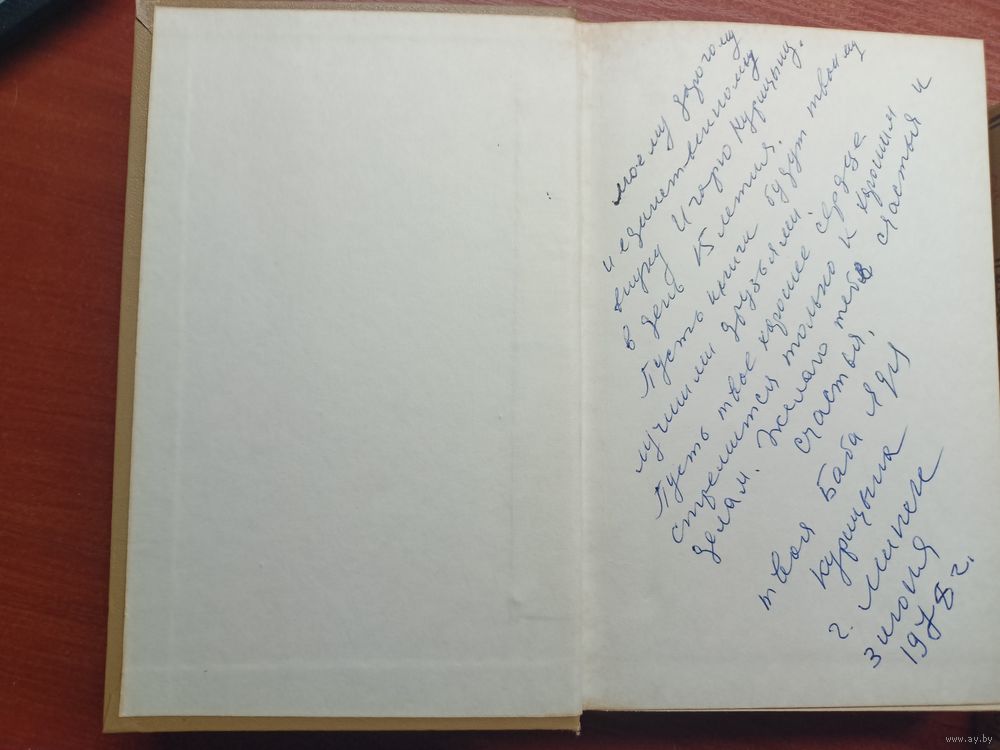 моему дорогому
и единственному
внуку Игорю Курицыну.
в день 15 летия.
Пусть книги будут твоими
лучшими друзьями.
Пусть твое хорошее сердце
стремится только к хорошим
делам. Желаю тебе счастья и
счастья.
твоя Баба Ядя
Курицына
г. Минск
3 июня
1978 г.
www.ay.by